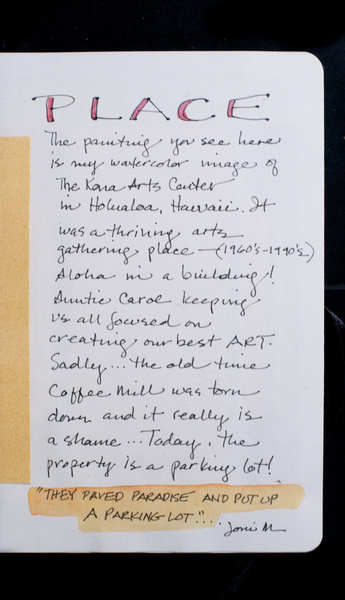 PLACE
The painting you see here
is my watercolor image of
The Kona Arts Center
in Holualoa, Hawaii. It
was a thriving arts
gathering place — (1960's-1990's)
Aloha in a building!
Auntie Carol keeping
us all focused on
creating our best ART.
Sadly... the old time
Coffee Mill was torn
down and it really is
a shame... Today, the
property is a parking lot!
"THEY PAVED PARADISE AND PUT UP
A PARKING LOT."...
Joni M